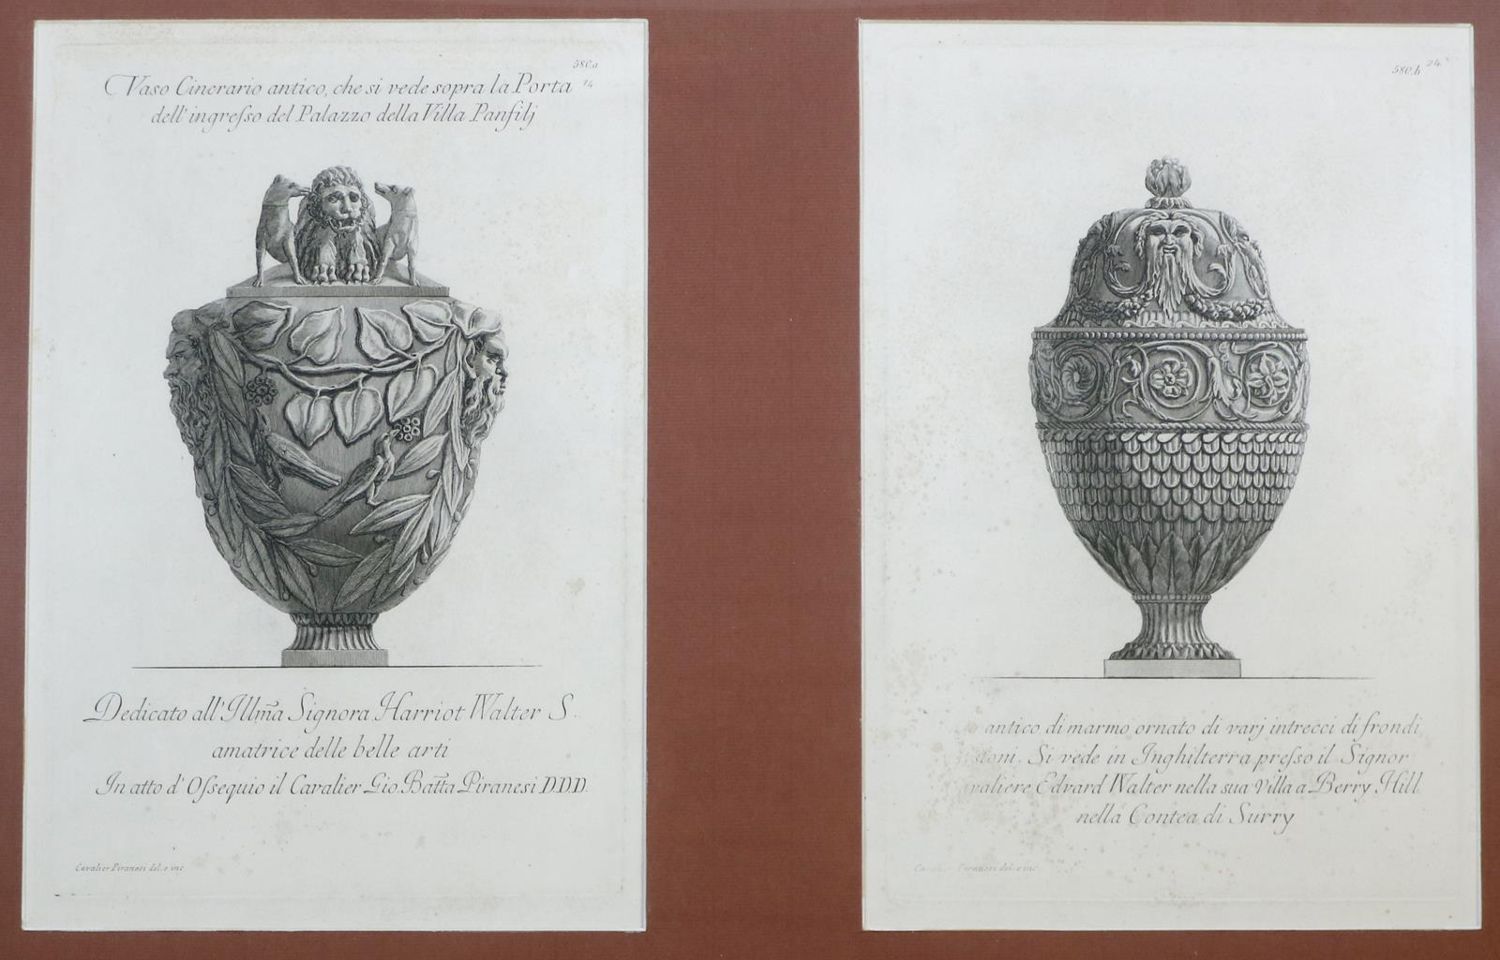 580.a
Vaso Cinerario antico, che si vede sopra la Porta
24
dell'ingreſso del Palazzo della Villa Panfilj
Dedicato all' Illma Signora Harriot Walter S
amatrice delle belle arti
In atto d'Oſsequio il Cavalier Gio. Batta Piranesi D.D.D.
Cavalier Piranesi del. e inc
580.b
24.
antico di marmo ornato di varj intrecci di frondi
Si vede in Inghilterra presso il Signor
Edvard Walter nella sua Villa a Berry Hill
nella Contea di Surry
Piranesi del. e inc